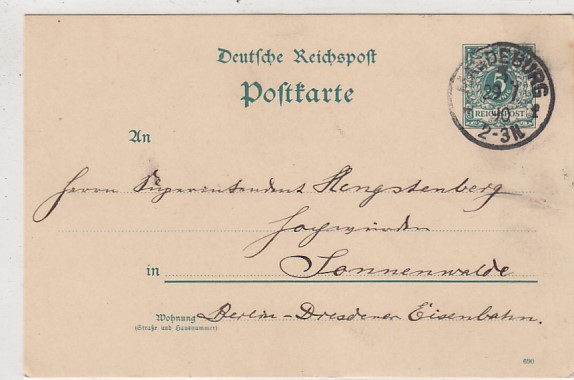 Deutsche Reichspost
Postkarte
MAGDEBURG
29 7
90
2-3N.
5
REICHSPOST
An
Herrn Superintendent Hengstenberg
Hochwürden
in Sonnenwalde
Wohnung Berlin-Dresdener Eisenbahn.
(Straße und Hausnummer)
690